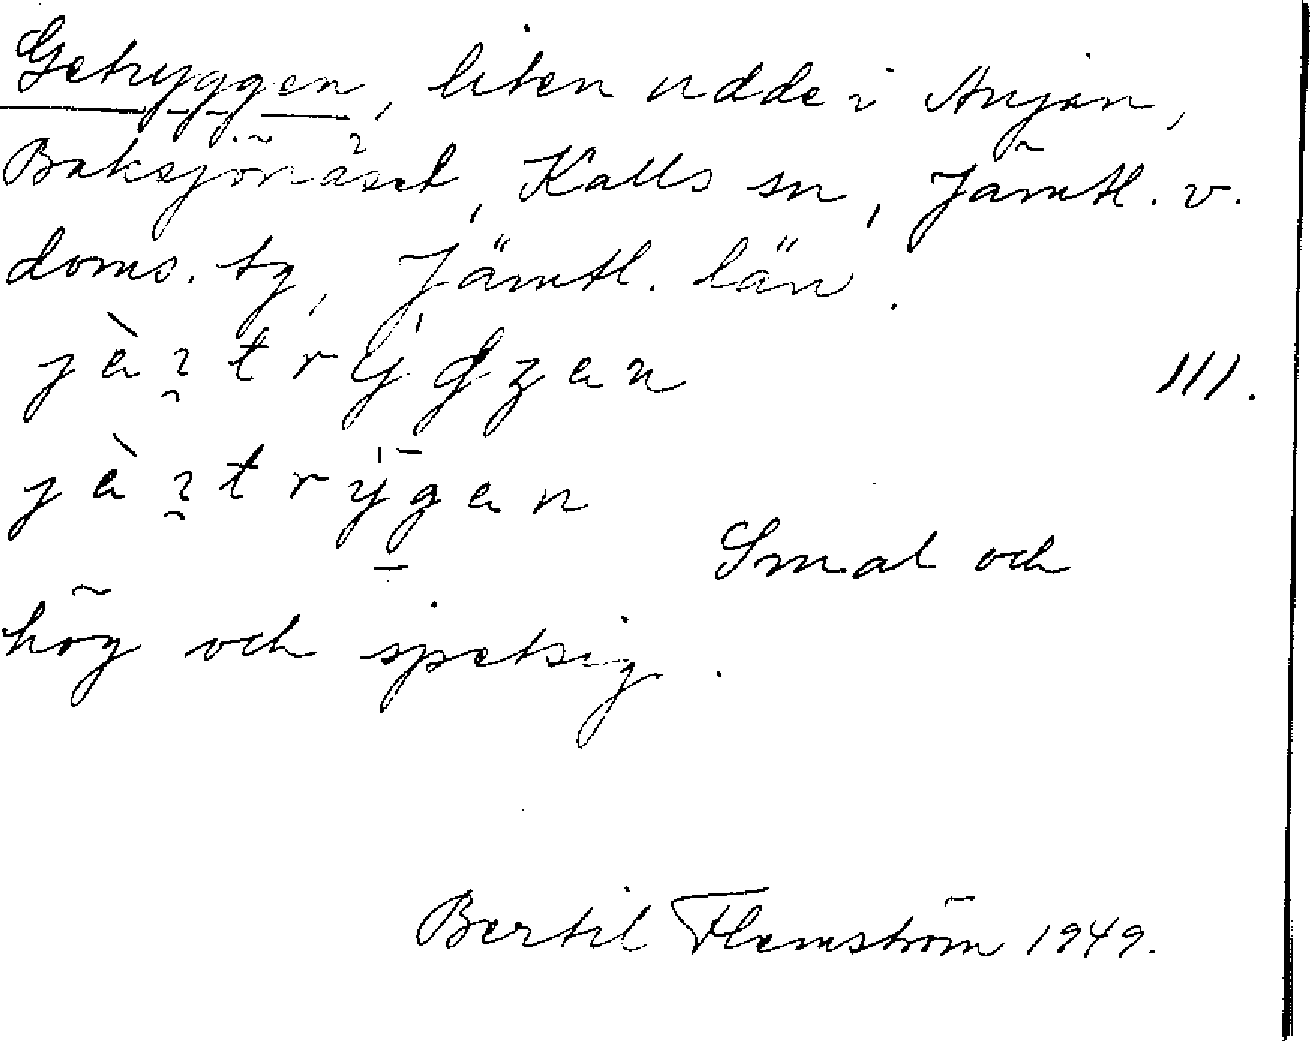 Getryggen, liten udde i Anjan,
Baksjönäset, Kalls sn, Jämtl. v.
doms. tg, Jämtl. län.
III.
Smal och
hög och spetsig.
Bertil Flemström 1949.